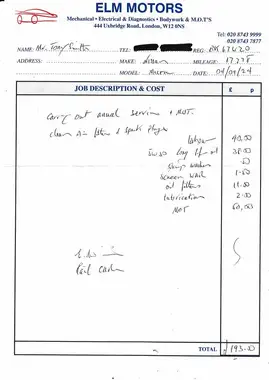 ELM MOTORS
Mechanical • Electrical & Diagnostics • Bodywork & M.O.T'S
444 Uxbridge Road, London, W12 0NS
Tel: 020 8743 9999
020 8743 7877
NAME: Mr. Tony TEL: REG:
ADDRESS: MAKE: Nissan MILEAGE:
MODEL: DATE: 04/09/24
JOB DESCRIPTION & COST £ p
Carrying out anual service + MOT.
clean air filter & spark plugs
labour 40.00
long life oil 38.00
Sump washer
screen wash 1.50
oil filter 11.00
lubrication 2.00
MOT 60,00
Paid Cash
TOTAL £ 193.00